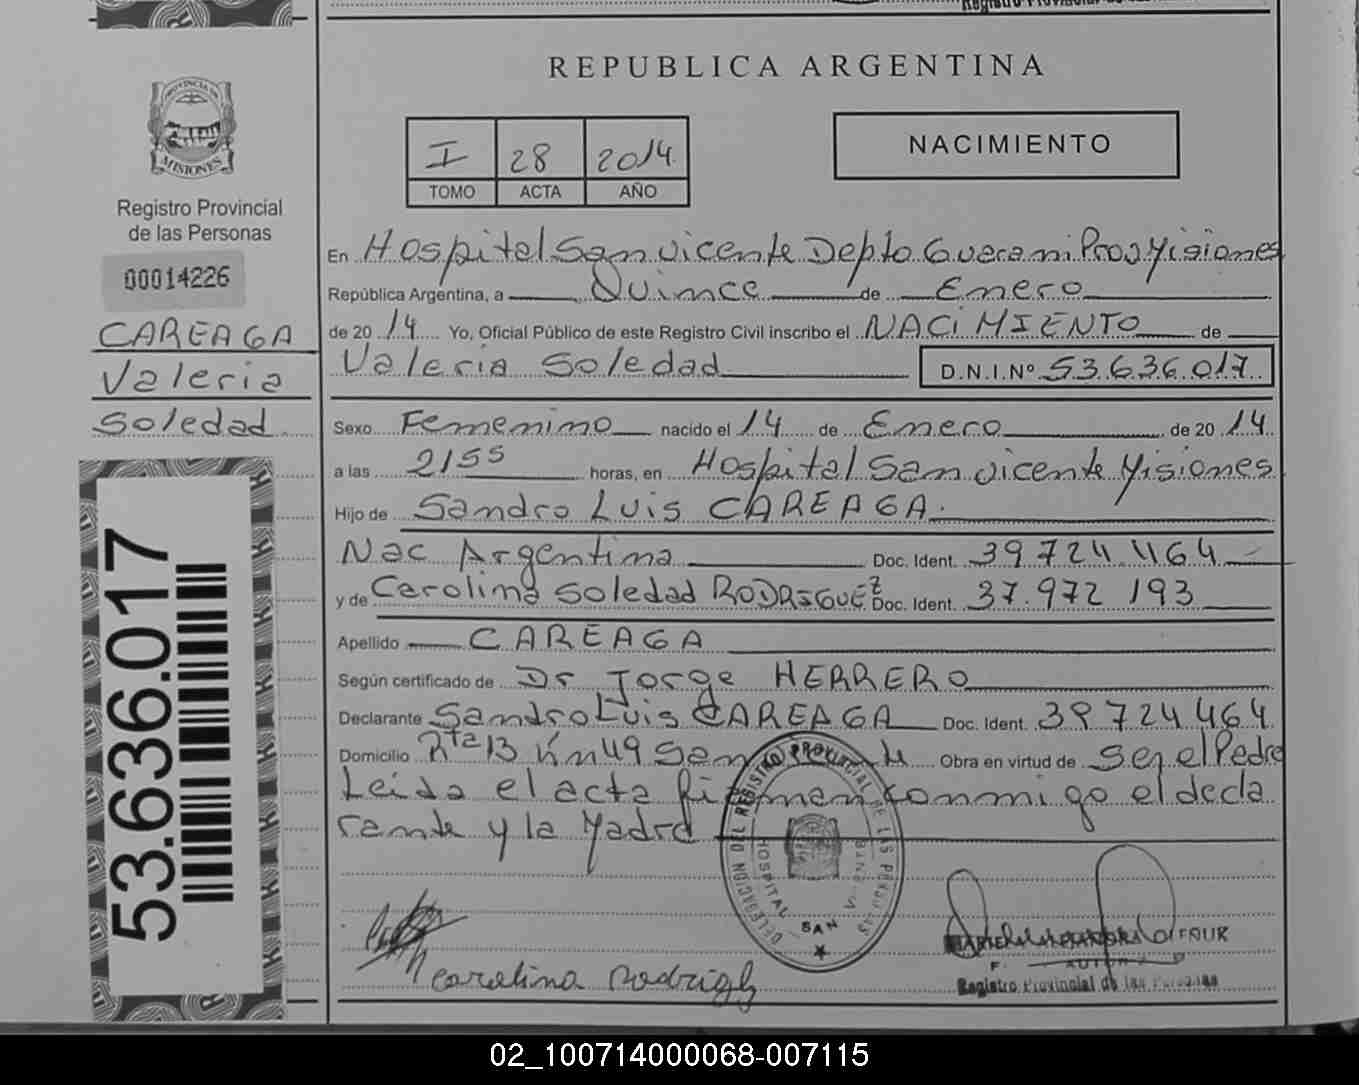 REPUBLICA ARGENTINA
PROVINCIA DE
MISIONES
Registro Provincial
de las Personas
00014226
CAREAGA
Valeria
Soledad
53.636.017
I 28 2014
TOMO ACTA AÑO
NACIMIENTO
En Hospital San vicente Depto Guarani Prov Misiones
República Argentina, a Quince de Enero
de 20 14 Yo, Oficial Público de este Registro Civil inscribo el NACIMIENTO de
Valeria Soledad D.N.I.Nº 53.636.017
Sexo Femenino nacido el 14 de Enero de 20 14
a las 2155 horas, en Hospital San vicente Misiones
Hijo de Sandro Luis CAREAGA
Nac Argentina Doc. Ident. 39 724 464
y de Carolina Soledad RODRIGUEZ Doc. Ident. 37.972 193
Apellido CAREAGA
Según certificado de Dr Jorge HERRERO
Declarante Sandro Luis CAREAGA Doc. Ident. 39 724 464
Domicilio Rta 13 Km 49 San vicente Obra en virtud de Ser el Padre
Leida el acta firman conmigo el decla
rante y la Madre
DELEGACION DEL REGISTRO PROVINCIAL DE LAS PERSONAS
HOSPITAL SAN VICENTE
Carolina
Registro Provincial de las Personas
02_100714000068-007115